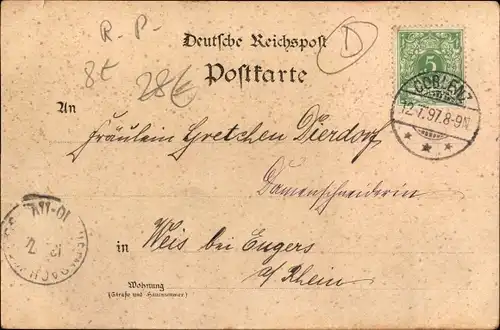 R - P -
Deutsche Reichspost
D
8€
28€
Postkarte
5
COBLENZ
12.7.97.8-9N.
An
Fräulein Gretchen Dierdorf
Damenschneiderin
in Weis bei Engers
a/Rhein
Wohnung
(Straße und Hausnummer)
10-11V.